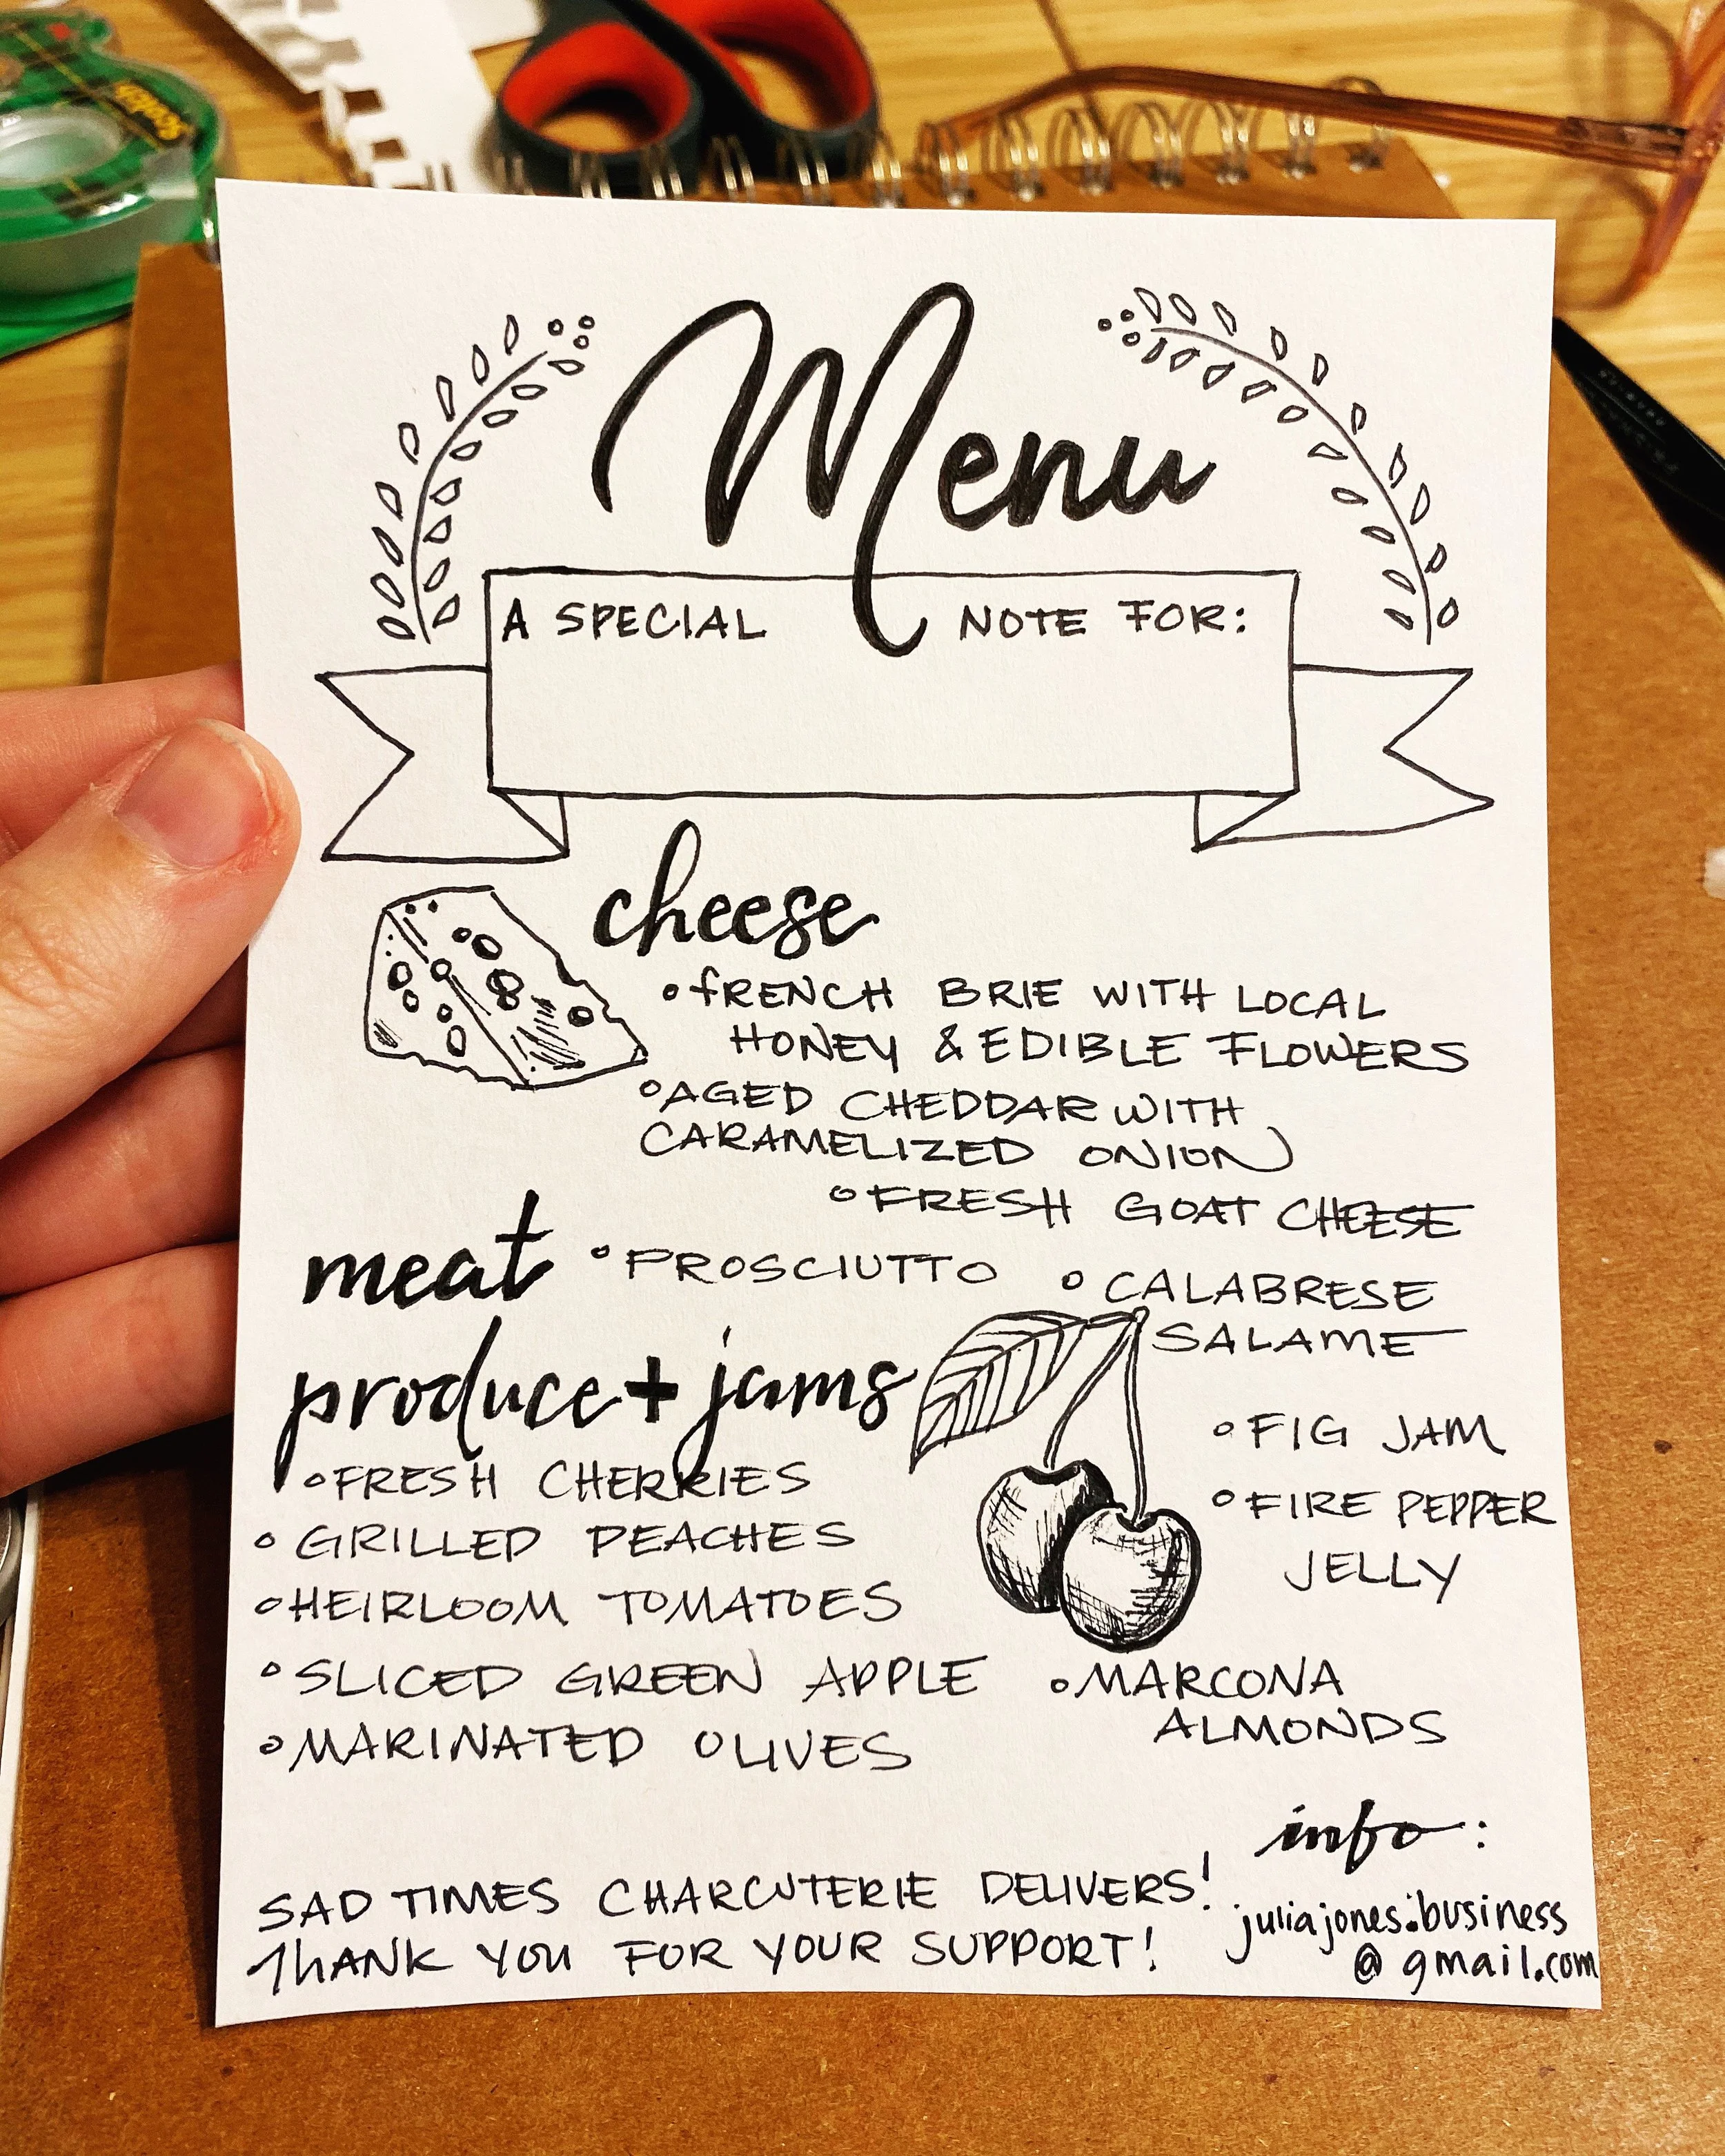 Scotch
Menu
A SPECIAL NOTE FOR:
cheese
° fRENCH BRIE WITH LOCAL
HONEY & EDIBLE FLOWERS
° AGED CHEDDAR WITH
CARAMELIZED ONION
° FRESH GOAT CHEESE
meat
° PROSCIUTTO
° CALABRESE
SALAME
produce + jams
° FRESH CHERRIES
° GRILLED PEACHES
° HEIRLOOM TOMATOES
° SLICED GREEN APPLE
° MARINATED OLIVES
° FIG JAM
° FIRE PEPPER
JELLY
° MARCONA
ALMONDS
SAD TIMES CHARCUTERIE DELIVERS!
THANK YOU FOR YOUR SUPPORT!
info:
juliajones.business
@gmail.com